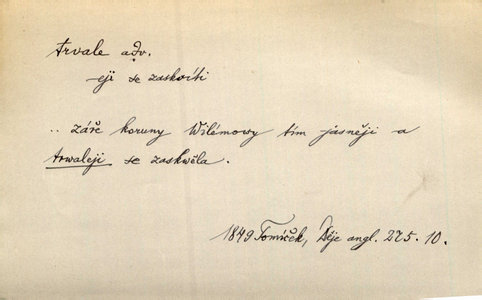 trvale adv.
-eji se zaskvíti
.. záře koruny Wilémowy tím jasněji a
trwaleji se zaskwěla.
1849 Tomíček, Děje angl. 275. 10.